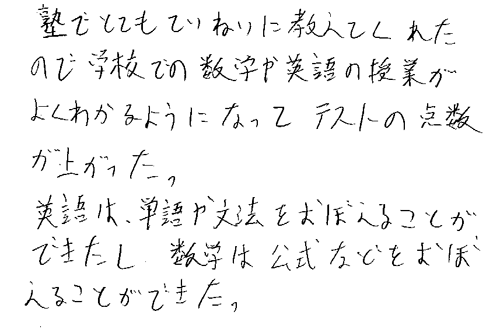 塾でとてもていねいに教えてくれた
ので学校での数学や英語の授業が
よくわかるようになってテストの点数
が上がった。
英語は、単語や文法をおぼえることが
できたし、数学は公式などをおぼ
えることができた。